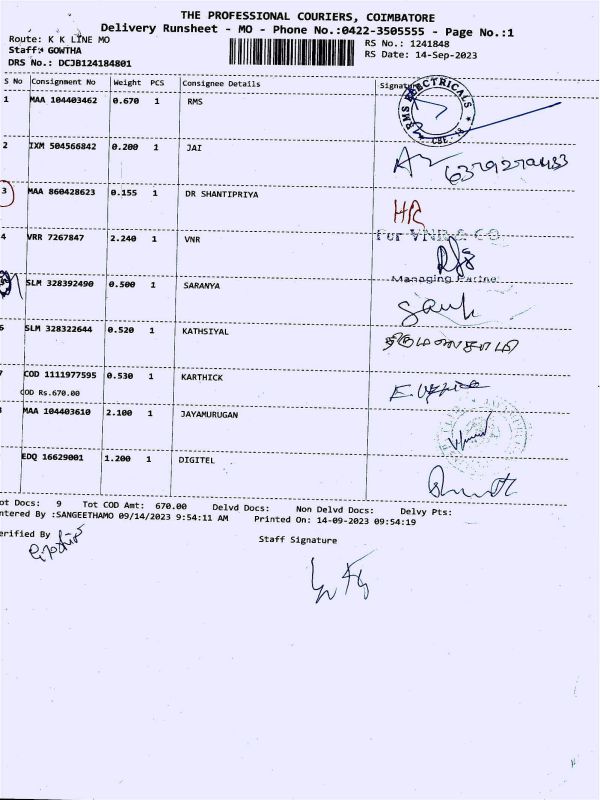 THE PROFESSIONAL COURIERS, COIMBATORE
Delivery Runsheet - MO - Phone No.:0422-3505555 - Page No.:1
Route: K K LINE MO
RS No.: 1241848
Staff: GOWTHA
RS Date: 14-Sep-2023
DRS No.: DCJB124184801
S No Consignment No Weight PCS Consignee Details Signature
1 MAA 104403462 0.670 1 RMS
RMS ELECTRICALS
2 IXM 504566842 0.200 1 JAI
3 MAA 860428623 0.155 1 DR SHANTIPRIYA
4 VRR 7267847 2.240 1 VNR
For VNR & CO
Managing Partner
SLM 328392490 0.500 1 SARANYA
SLM 328322644 0.520 1 KATHSIYAL
COD 1111977595 0.530 1 KARTHICK
COD Rs.670.00
MAA 104403610 2.100 1 JAYAMURUGAN
EDQ 16629001 1.200 1 DIGITEL
ot Docs: 9 Tot COD Amt: 670.00 Delvd Docs: Non Delvd Docs: Delvy Pts:
ntered By :SANGEETHAMO 09/14/2023 9:54:11 AM Printed On: 14-09-2023 09:54:19
erified By
Staff Signature